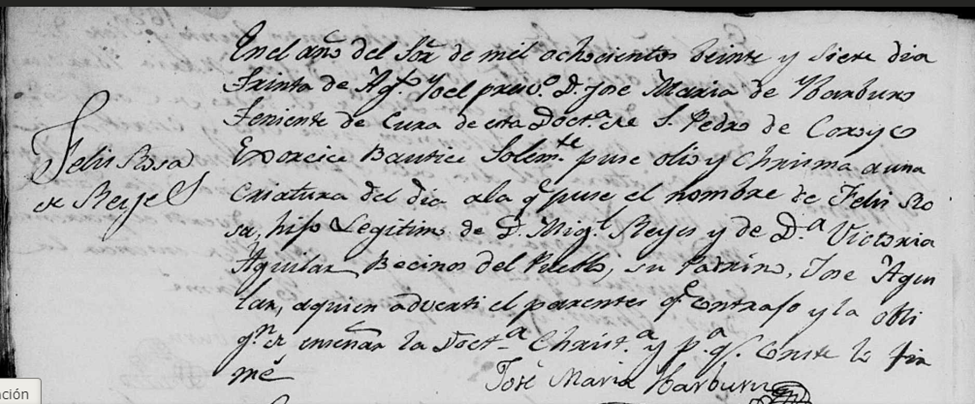 En el año del Sor. de mil ochocientos Beinte y Siete dia
Trinta de Agt. Yo el presvo. D. Jose Maria de Ybarburo
Teniente de Cura de esta Doctª. de S. Pedro de Coroyco
Exorcice Bautice Solemte. puse olio y Chrisma a una
Criatura del dia a la q puse el nombre de Felis Ro
sa, hijo Legitimo de D. Migl. Reyes y de Dª. Victoria
Aguilar Becinos del Pueblo, su Padrino, Jose Agui
lar, a quien adverti el parentes qe. contrajo y la obli
gn. de enseñar la Doctª. Christª. y pª. q. Conste lo fir
mé
Jose Maria Ybarburo
Felis Rosa
de Reyes
ación